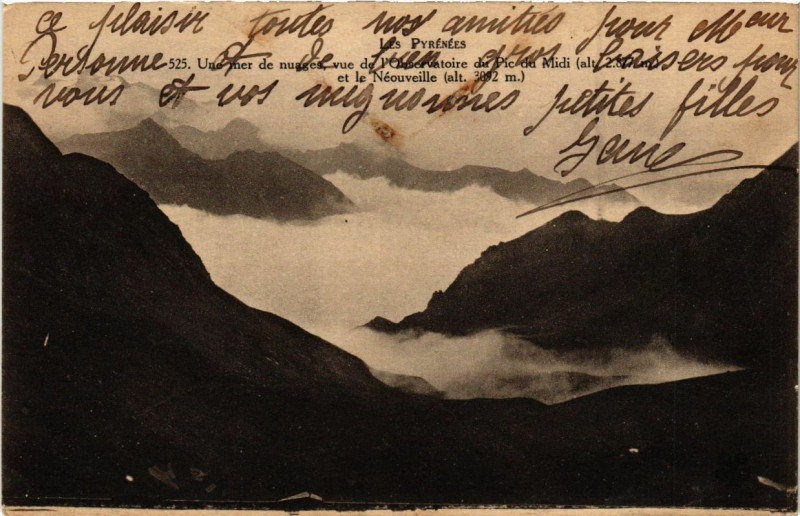 ce plaisir toutes nos amitiés pour Mme
Personne et de bien gros baisers pour
vous et vos mignonnes petites filles
LES PYRÉNÉES
525. Une mer de nuages, vue de l'Observatoire du Pic du Midi (alt. 2.877 m.)
et le Néouveille (alt. 3092 m.)